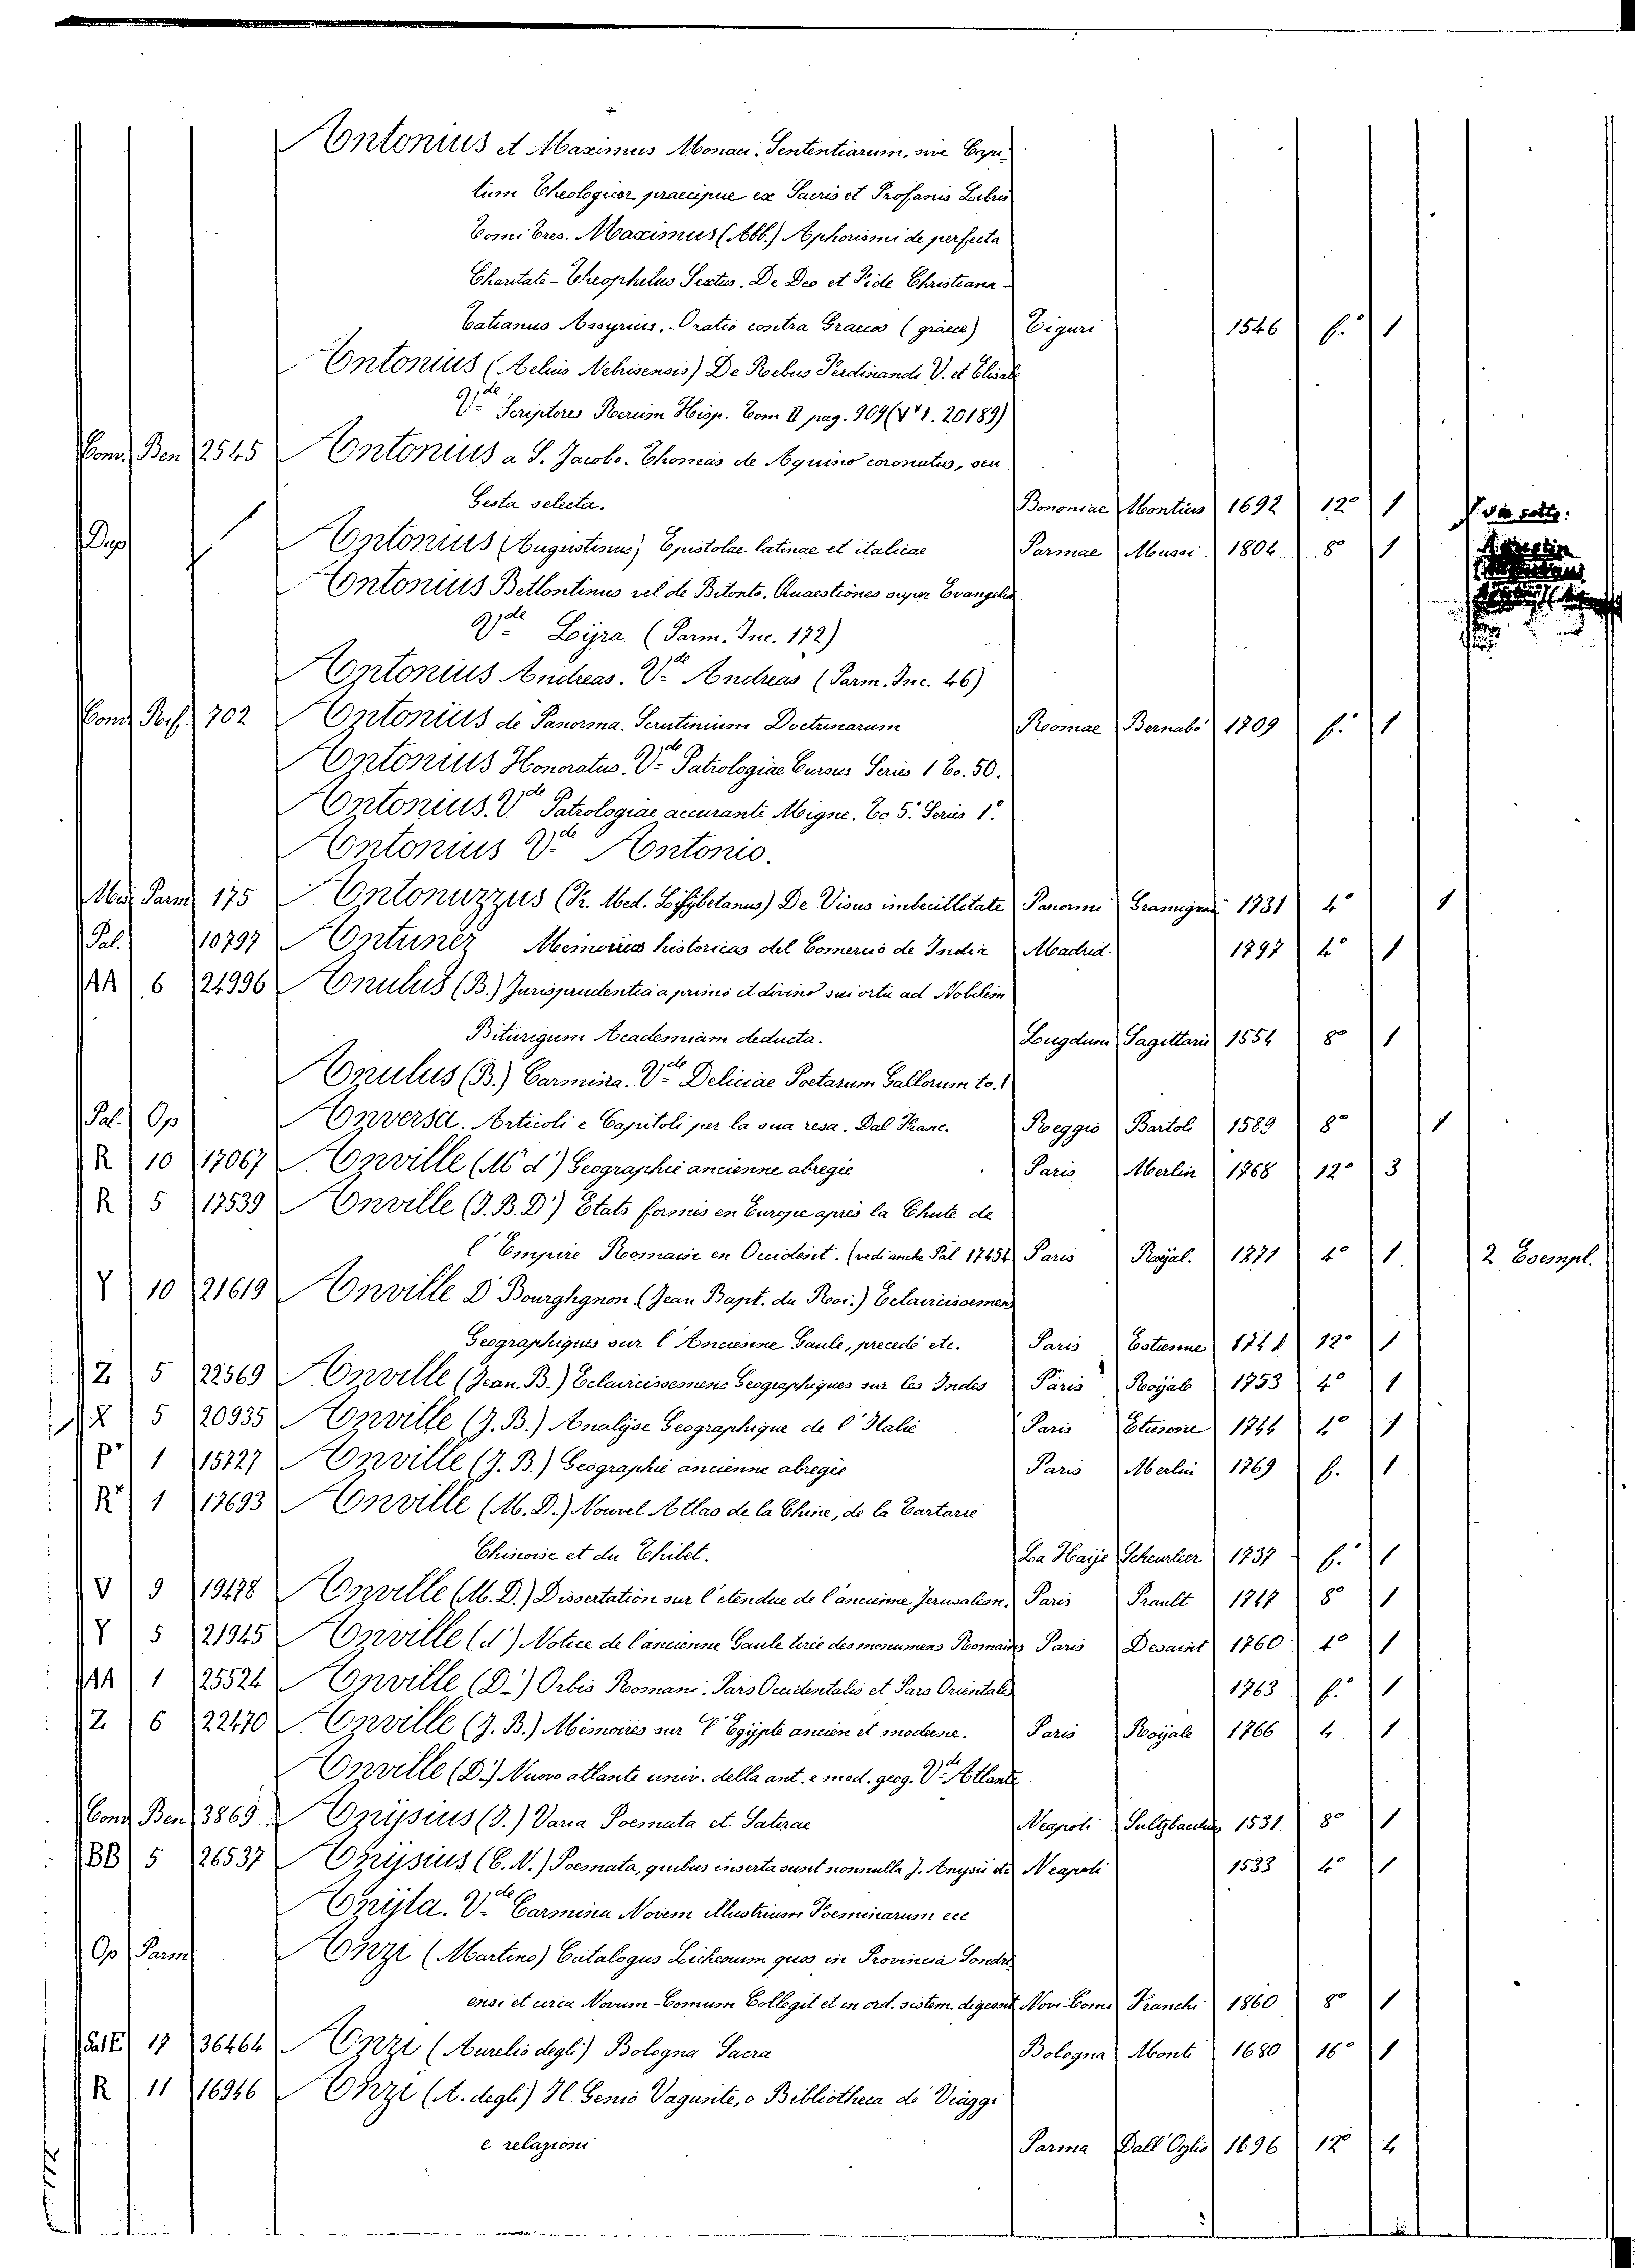 Antonius et Maximus Monaci. Sententiarum, sive Capi-
tum Theologicor. praecipue ex Sacris et Profanis Libris
Tomi tres. Maximus (Abb.) Aphorismi de perfecta
Charitate - Theophilus Sextus. De Deo et Fide Christiana -
Tatianus Assyrius. Oratio contra Graecos (graece) Tiguri 1546 f.° 1
Antonius (Aelius Nebrisensis) De Rebus Ferdinandi V. et Elisabe
V.de Scriptores Rerum Hisp. Tom II pag. 909 (Vt 1. 20189)
Conv. Ben 2545 Antonius a S. Jacobo. Thomas de Aquino coronatus, seu
Gesta selecta. Bononiae Montius 1692 12° 1
Dup Antonius (Augustinus) Epistolae latinae et italicae Parmae Mussi 1804 8° 1
Antonius Betlontinus vel de Bitonto. Quaestiones super Evangelia
V.de Lijra (Parm. Inc. 172)
Antonius Andreas. V.de Andreas (Parm. Inc. 46)
702 Antonius de Panorma. Scrutinium Doctrinarum Romae Bernabò 1709 f.° 1
Antonius Honoratus. V.de Patrologiae Cursus Series 1 To. 50.
Antonius. V.de Patrologiae accurante Migne. To 5.° Series 1.a
Antonius V.de Antonio.
Parm 175 Antonuzzus (Fr. Med. Lijlybetanus) De Visus imbecillitate Panormi 1731 4° 1
Pal. 10797 Antunez Memorias historicas del Comercio de India Madrid. 1797 4° 1
AA 6 24996 Anulus (B.) Jurisprudentia a primo et divino sui ortu ad Nobilem
Biturigum Academiam deducta. Lugduni Sagittarii 1554 8° 1
Anulus (B.) Carmina. V.de Deliciae Poetarum Gallorum to. 1
Pal. Op Anversa. Articoli e Capitoli per la sua resa. Dal Franc. Reggio Bartoli 1589 8° 1
R 10 17067 Anville (Mr d') Geographie ancienne abregée Paris Merlin 1768 12° 3
R 5 17539 Anville (J. B. D') Etats formés en Europe après la Chute de
l'Empire Romaine en Occident. (vedi anche Pal 17454 Paris Royal. 1771 4° 1. 2 Esempl.
Y 10 21619 Anville D' Bourghgnon. (Jean Bapt. du Roi.) Eclaircissemen
Geographiques sur l'Ancienne Gaule, precedé etc. Paris Estienne 1741 12° 1
Z 5 22569 Anville (Jean. B.) Eclaircissemens Geographiques sur les Indes Paris Royale 1753 4° 1
X 5 20935 Anville (J. B.) Analyse Geographique de l'Italie Paris Etienne 1744 4° 1
P* 1 15727 Anville (J. B.) Geographie ancienne abregée Paris Merlin 1769 f. 1
R* 1 17693 Anville (M. D.) Nouvel Atlas de la Chine, de la Tartarie
Chinoise et du Thibet. La Haye Scheurleer 1737 f.° 1
V 9 19478 Anville (M. D.) Dissertation sur l'etendue de l'ancienne Jerusalem. Paris Prault 1747 8° 1
Y 5 21945 Anville (d') Notice de l'ancienne Gaule tirée des monumens Romains Paris Desaint 1760 4° 1
AA 1 25524 Anville (D.') Orbis Romani. Pars Occidentalis et Pars Orientalis 1763 f.° 1
Z 6 22470 Anville (J. B.) Mémoires sur l'Egypte ancien et moderne. Paris Royale 1766 4. 1
Anville (D.') Nuovo atlante univ. della ant. e mod. geog. V.de Atlante
Conv. Ben 3869 Anijsius (J.) Varia Poemata et Saterae Neapoli Sultzbacchus 1531 8° 1
BB 5 26537 Anijsius (C. N.) Poemata, quibus inserta sunt nonnulla J. Anysii etc Neapoli 1533 4° 1
Anijta. V.de Carmina Novem illustrium Foeminarum ecc
Op Parm Anzi (Martino) Catalogus Lichenum quos in Provincia Sondri
ensi et circa Novum-Comum Collegit et in ord. sistem. digessit Novi Comi Franchi 1860 8° 1
17 36464 Anzi (Aurelio degli) Bologna Sacra Bologna Monti 1680 16° 1
R 11 16946 Anzi (A. degli) Il Genio Vagante, o Bibliotheca di Viaggi
e relazioni Parma Dall'Oglio 1696 12° 4